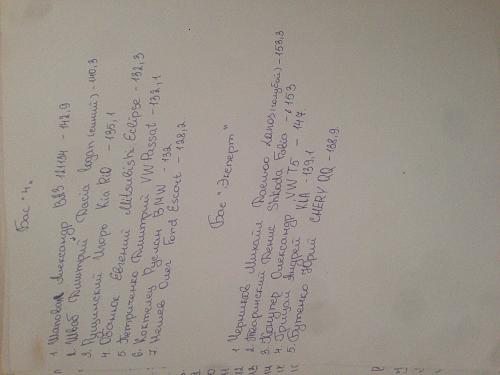 Бас "4"
1 Шаповал Александр ВАЗ 21134 - 142,9
2. Швед Дмитрий Dacia Logan (синий) - 140,3
3. Пушинский Игорь Kia Rio - 135,1
4. Евгений Mitsubishi Eclipse - 132,3
5 Петриченко Дмитрий VW Passat - 132,1
6. Коктелец Руслан BMW - 132
7 Нешев Олег Ford Escort - 128,2
Бас "Эксперт"
1 Черников Михайл Daewoo Lanos (голубой) - 158,3
2. Тваринский Денис Shkoda Fabia - 153
3. Александр VW T5 - 147
4. Грицай Андрей KIA - 139,1
5. Бутенко Юрий CHERY QQ - 138,9